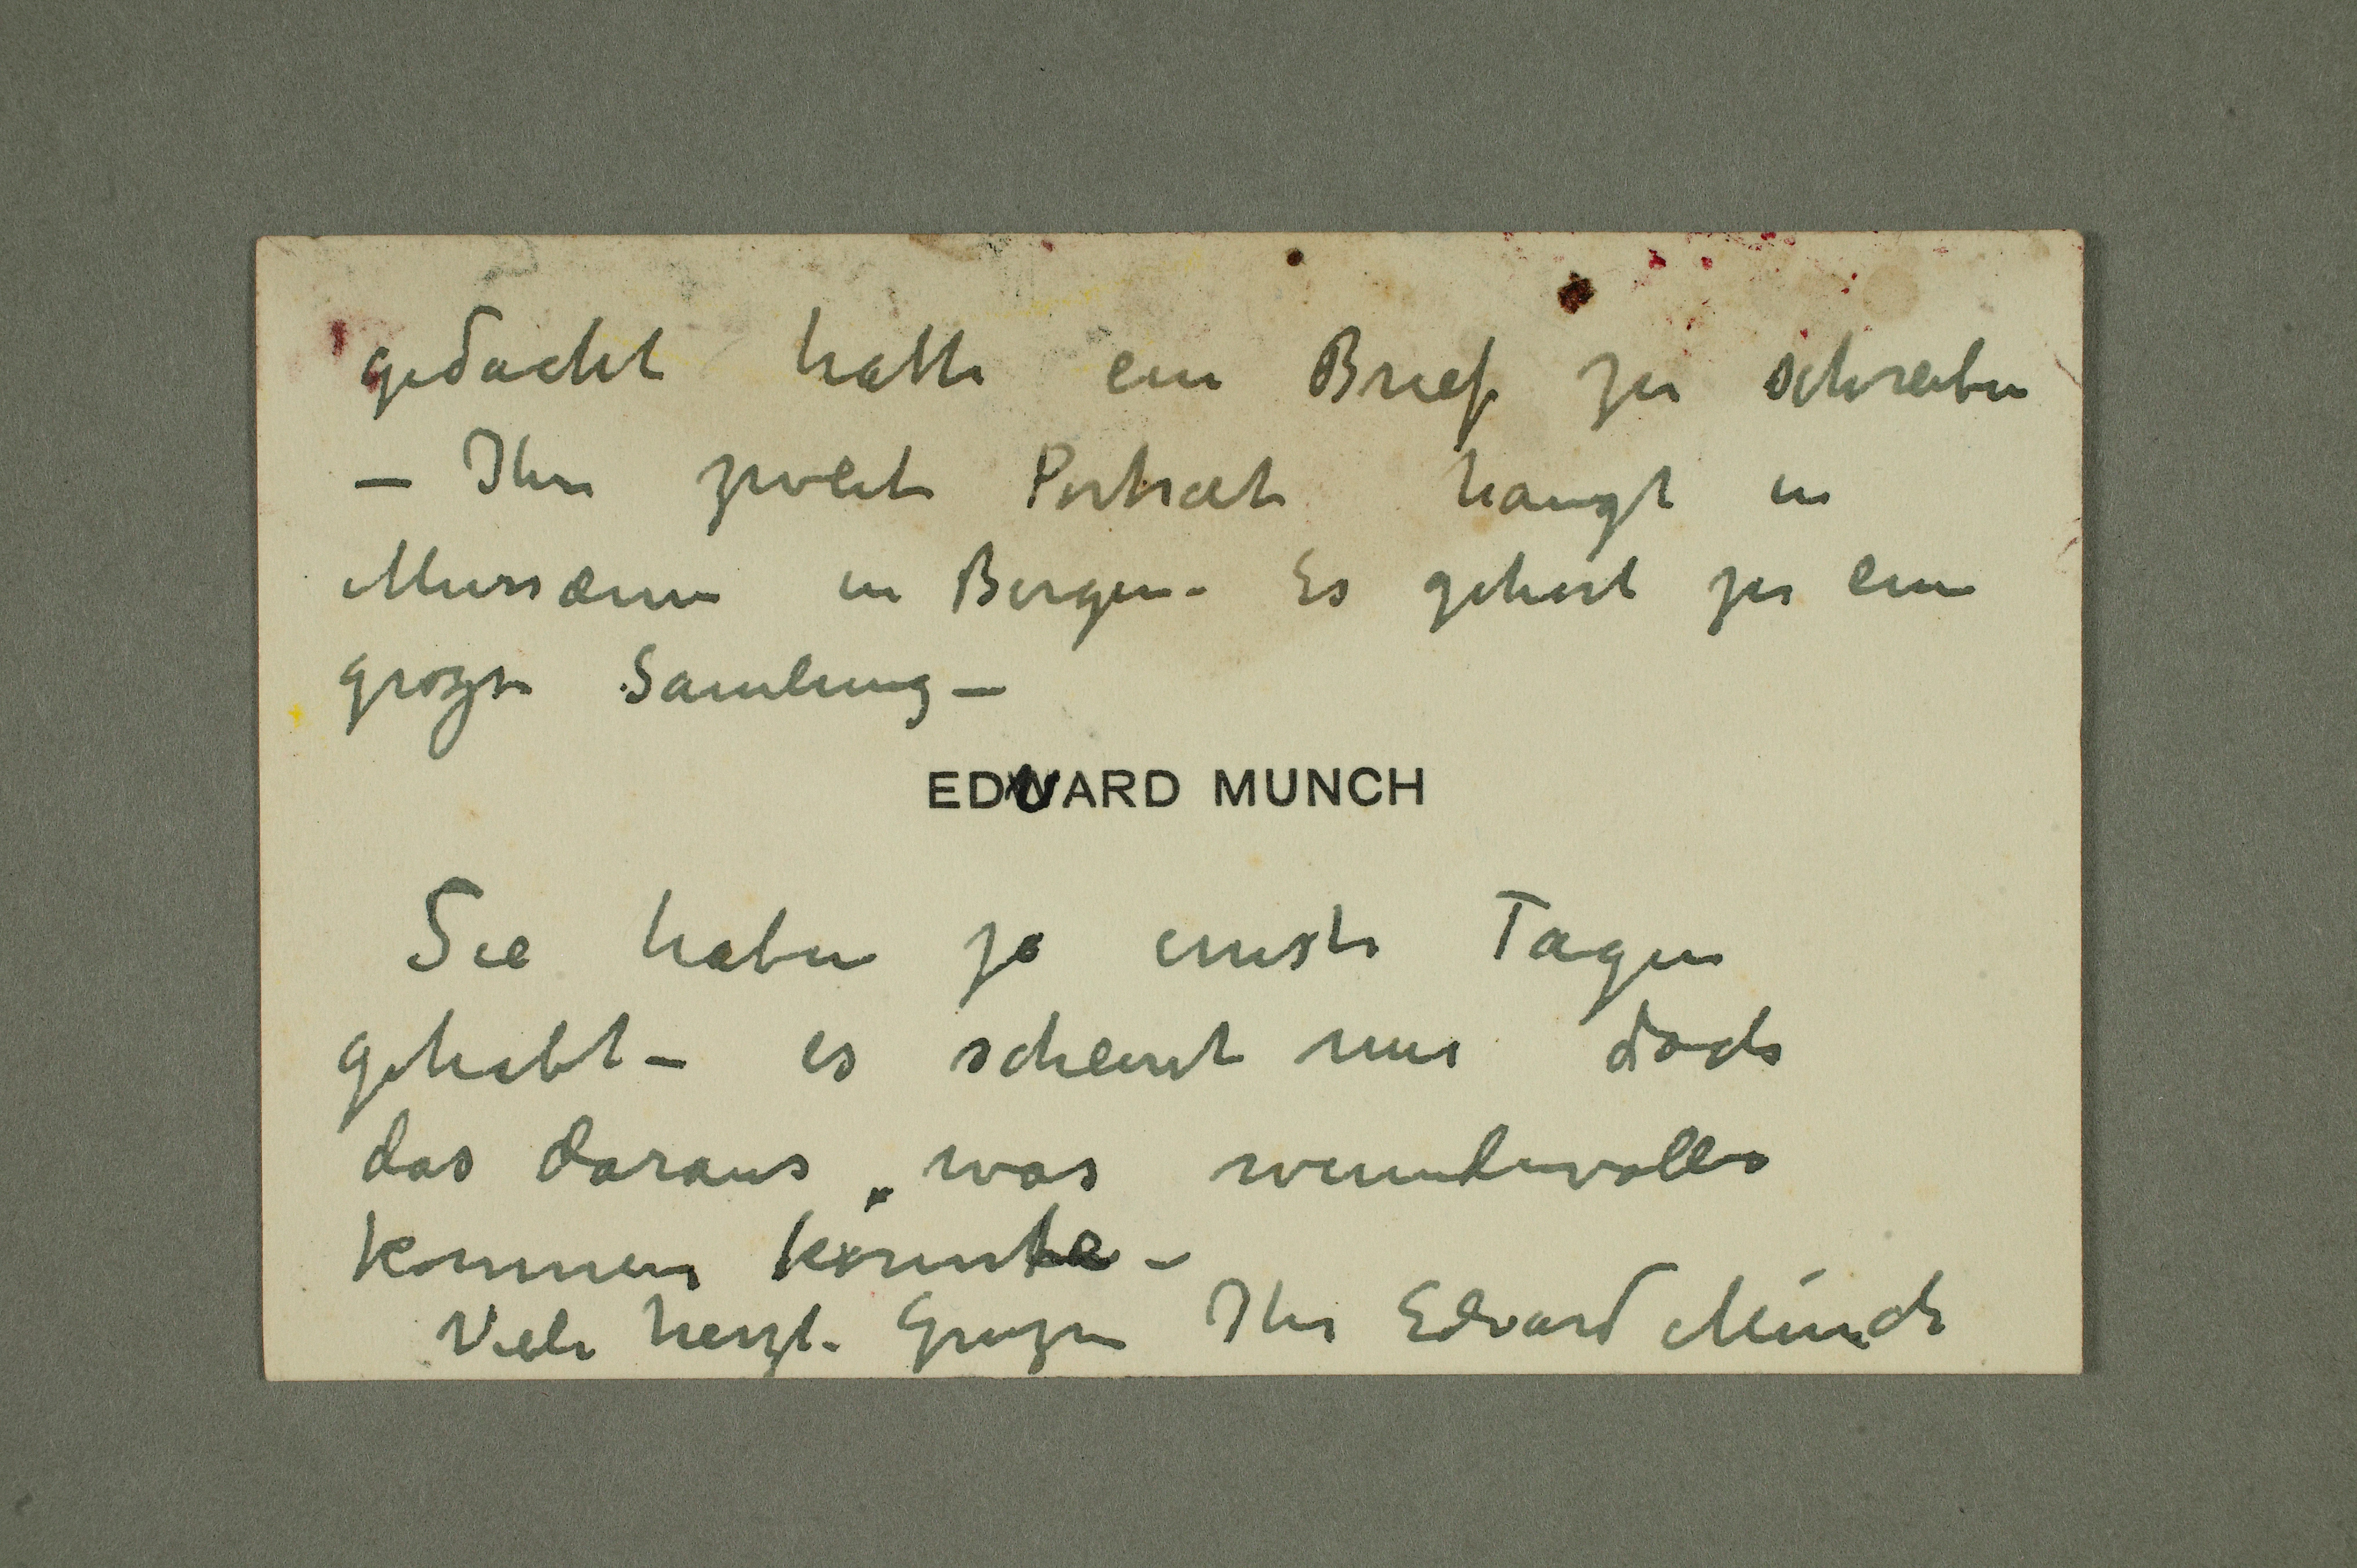 gedacht hatte ein Brief zu schreiben
– Ihre zweite Portræt hangt in
Musæum in Bergen – Es gehört zu eine
grozse Samlung –
EDVARD MUNCH
Sie haben ja ernste Tagen
gehabt – es scheint mir doch
das daraus was wundervolles
kommen könnte –
Viele herzl. Gruze Ihr Edvard Munch